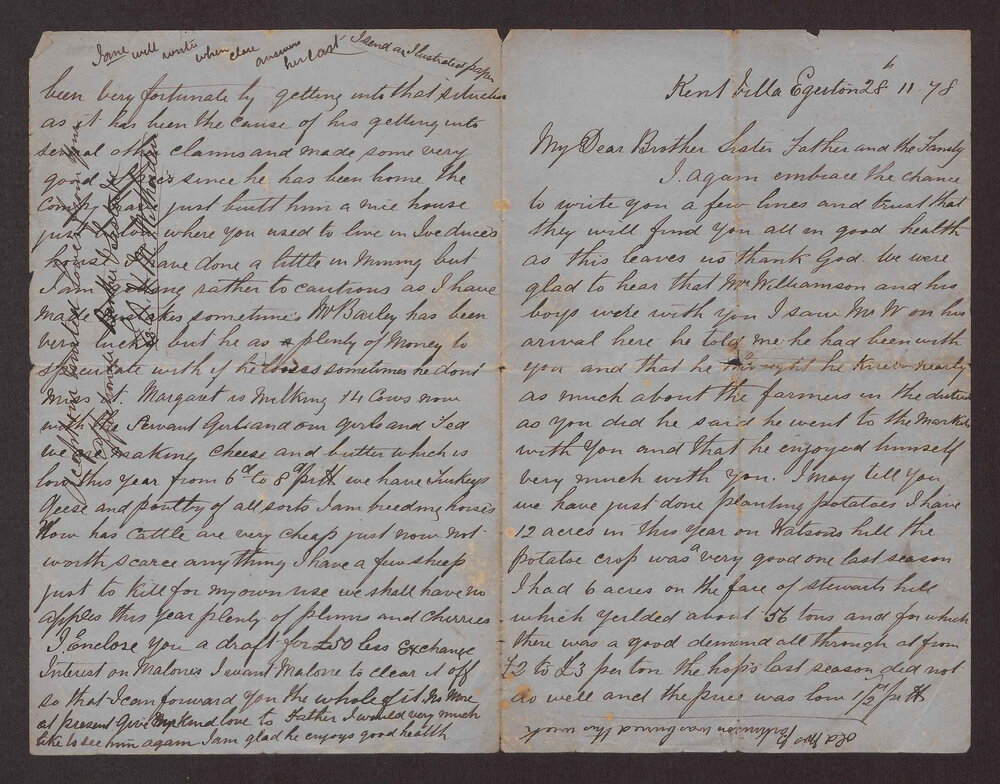 Kent Villa Egerton 28th 11 - 78
My Dear Brother Sister Father and the Family
I again embrace the chance
to write you a few lines and trust that
they will find you all in good health
as this leaves us thank God. we were
glad to hear that Mr Williamson and his
boys were with you I saw Mr W on his
arival here he told me he had been with
you and that he thought he knew nearly
as much about the farmers in the district
as you did he said he went to the Markets
with You and that he enjoyed himself
very much with you. I may tell you
we have just done planting potatoes I have
12 acres in this year on Watsons hill the
potatoe crop was a very good one last season
I had 6 acres on the face of stewarts hill
which yeilded about 56 tons and for which
there was a good demand all through at from
£2 to £3 per ton the hops last season did not
do well and the price was low 1/2 pr lb
Old Mrs
Parkinson was buried this week
Jane will write when clare answers
her last I send an Ilustrated paper
been very fortunate by getting into that situation
as it has been the cause of his getting into
several other claims and made some very
good since he has been home the
Company just built him a nice house
just where you used to live in
house I have done a little in Mining but
I am rather to cautious as I have
made mistakes sometimes Mr Bailey has been
very lucky but he as a plenty of Money to
speculate with if he looses sometimes he dont
Miss it. Margaret is Milking 14 Cows now
with the Servant Girl and our girls and Ted
we are making cheese and butter which is
low this year from 6d to 8d pr lb we have Turkeys
Geese and poultry of all sorts I am breeding horses
Now has cattle are very cheap just now not
worth scarce any thing I have a few sheep
just to kill for my own use we shall have no
apples this year plenty of plums and cherries
I Enclose You a draft for £50 less Exchange
Interest on Malones I want Malone to clear it off
so that I can forward you the whole of it No More
at present Give My Kind love to Father I would very much
like to see him again I am glad he enjoys good health
accept our united love from your
affectionate Brother & Sister